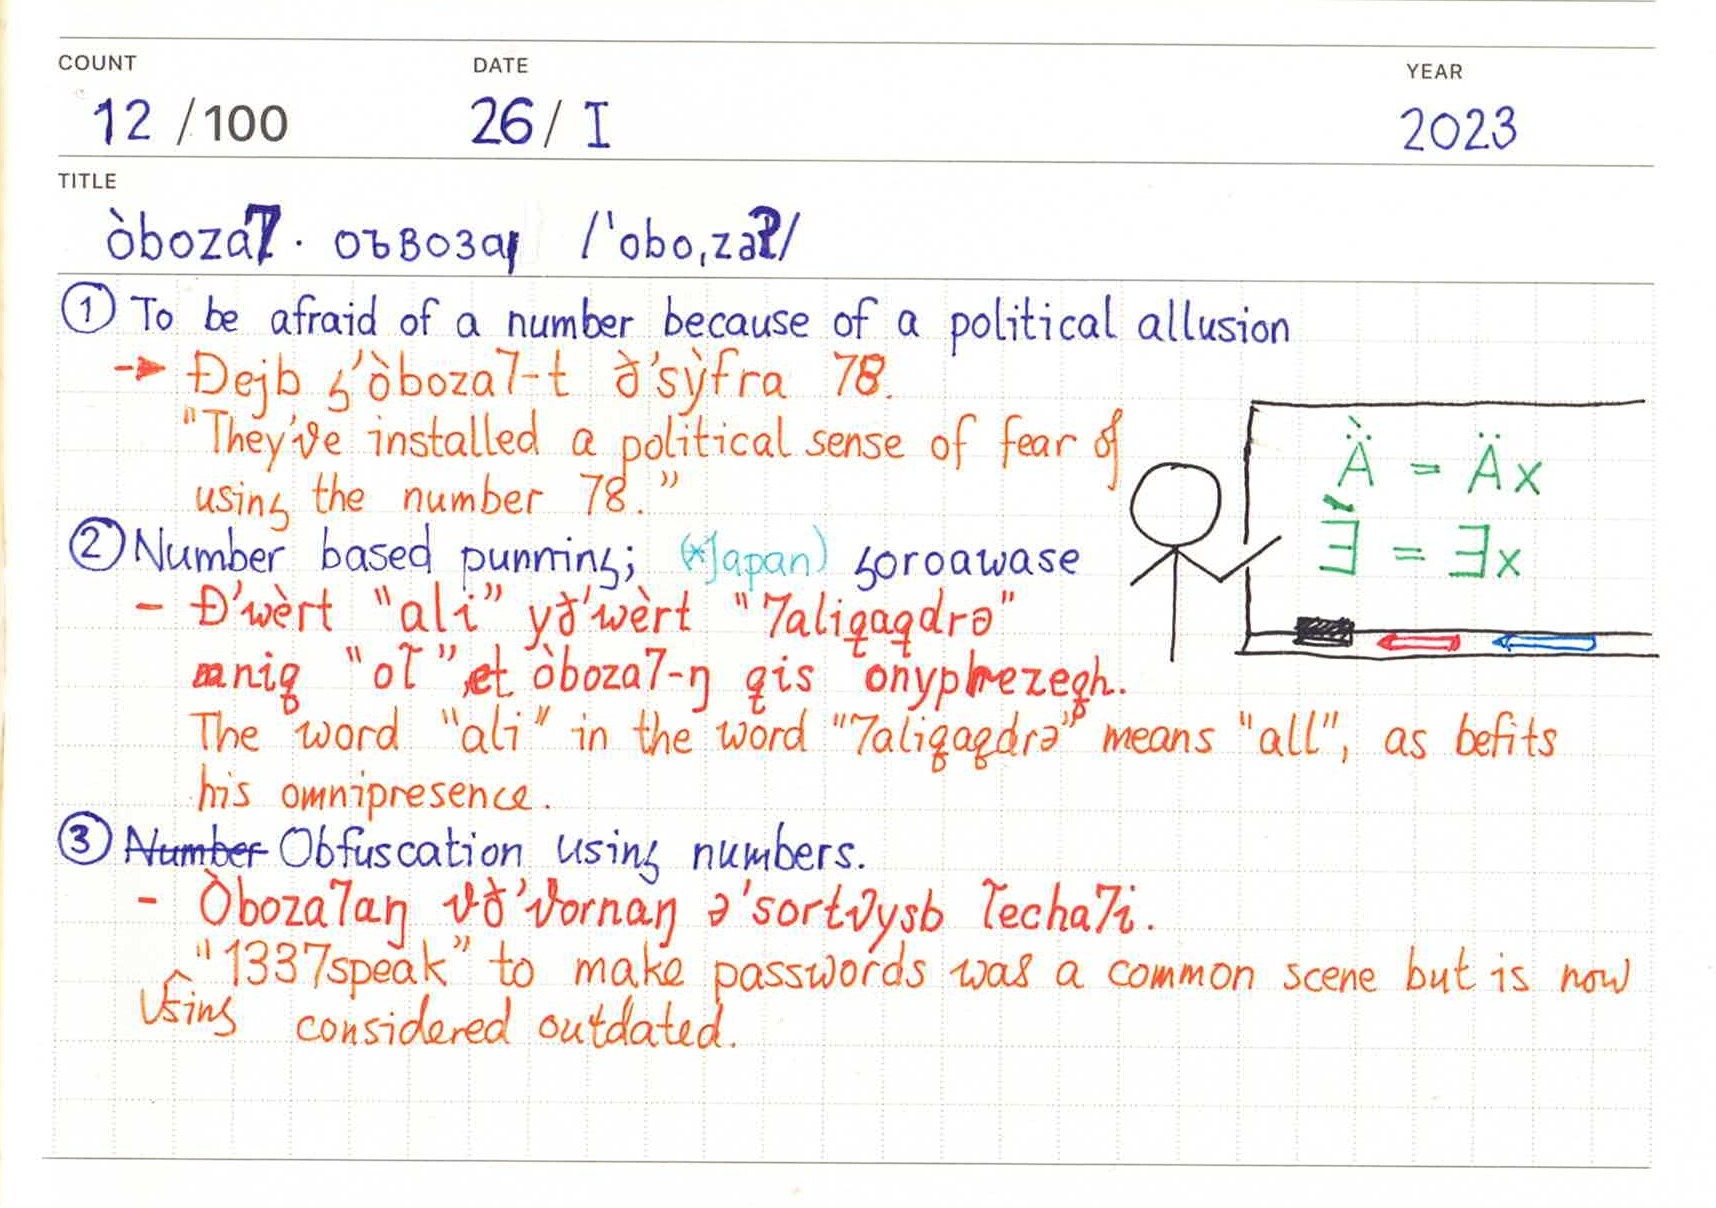 COUNT DATE YEAR
12 /100 26/I 2023
TITLE
òboza7 · оъвозаꞁ /ˈobo,zəʔ/
① To be afraid of a number because of a political allusion
→ Đejb ɢ'òboza7-t ð'sỳfra 78.
"They've installed a political sense of fear of
using the number 78."
② Number based punning; (*Japan) goroawase
- Đ'wèrt "ali" yð'wèrt "7aliqaqdrə"
mniq "ol̃", et òboza7-ŋ qis onyphezeqh.
The word "ali" in the word "7aliqaqdrə" means "all", as befits
his omnipresence.
③ Number Obfuscation using numbers.
- Òboza7aŋ vð'vornaŋ ə'sortvysb l̃echa7i.
Using "1337speak" to make passwords was a common scene but is now
considered outdated.
Ä̀ = Äx
∃̀ = ∃x